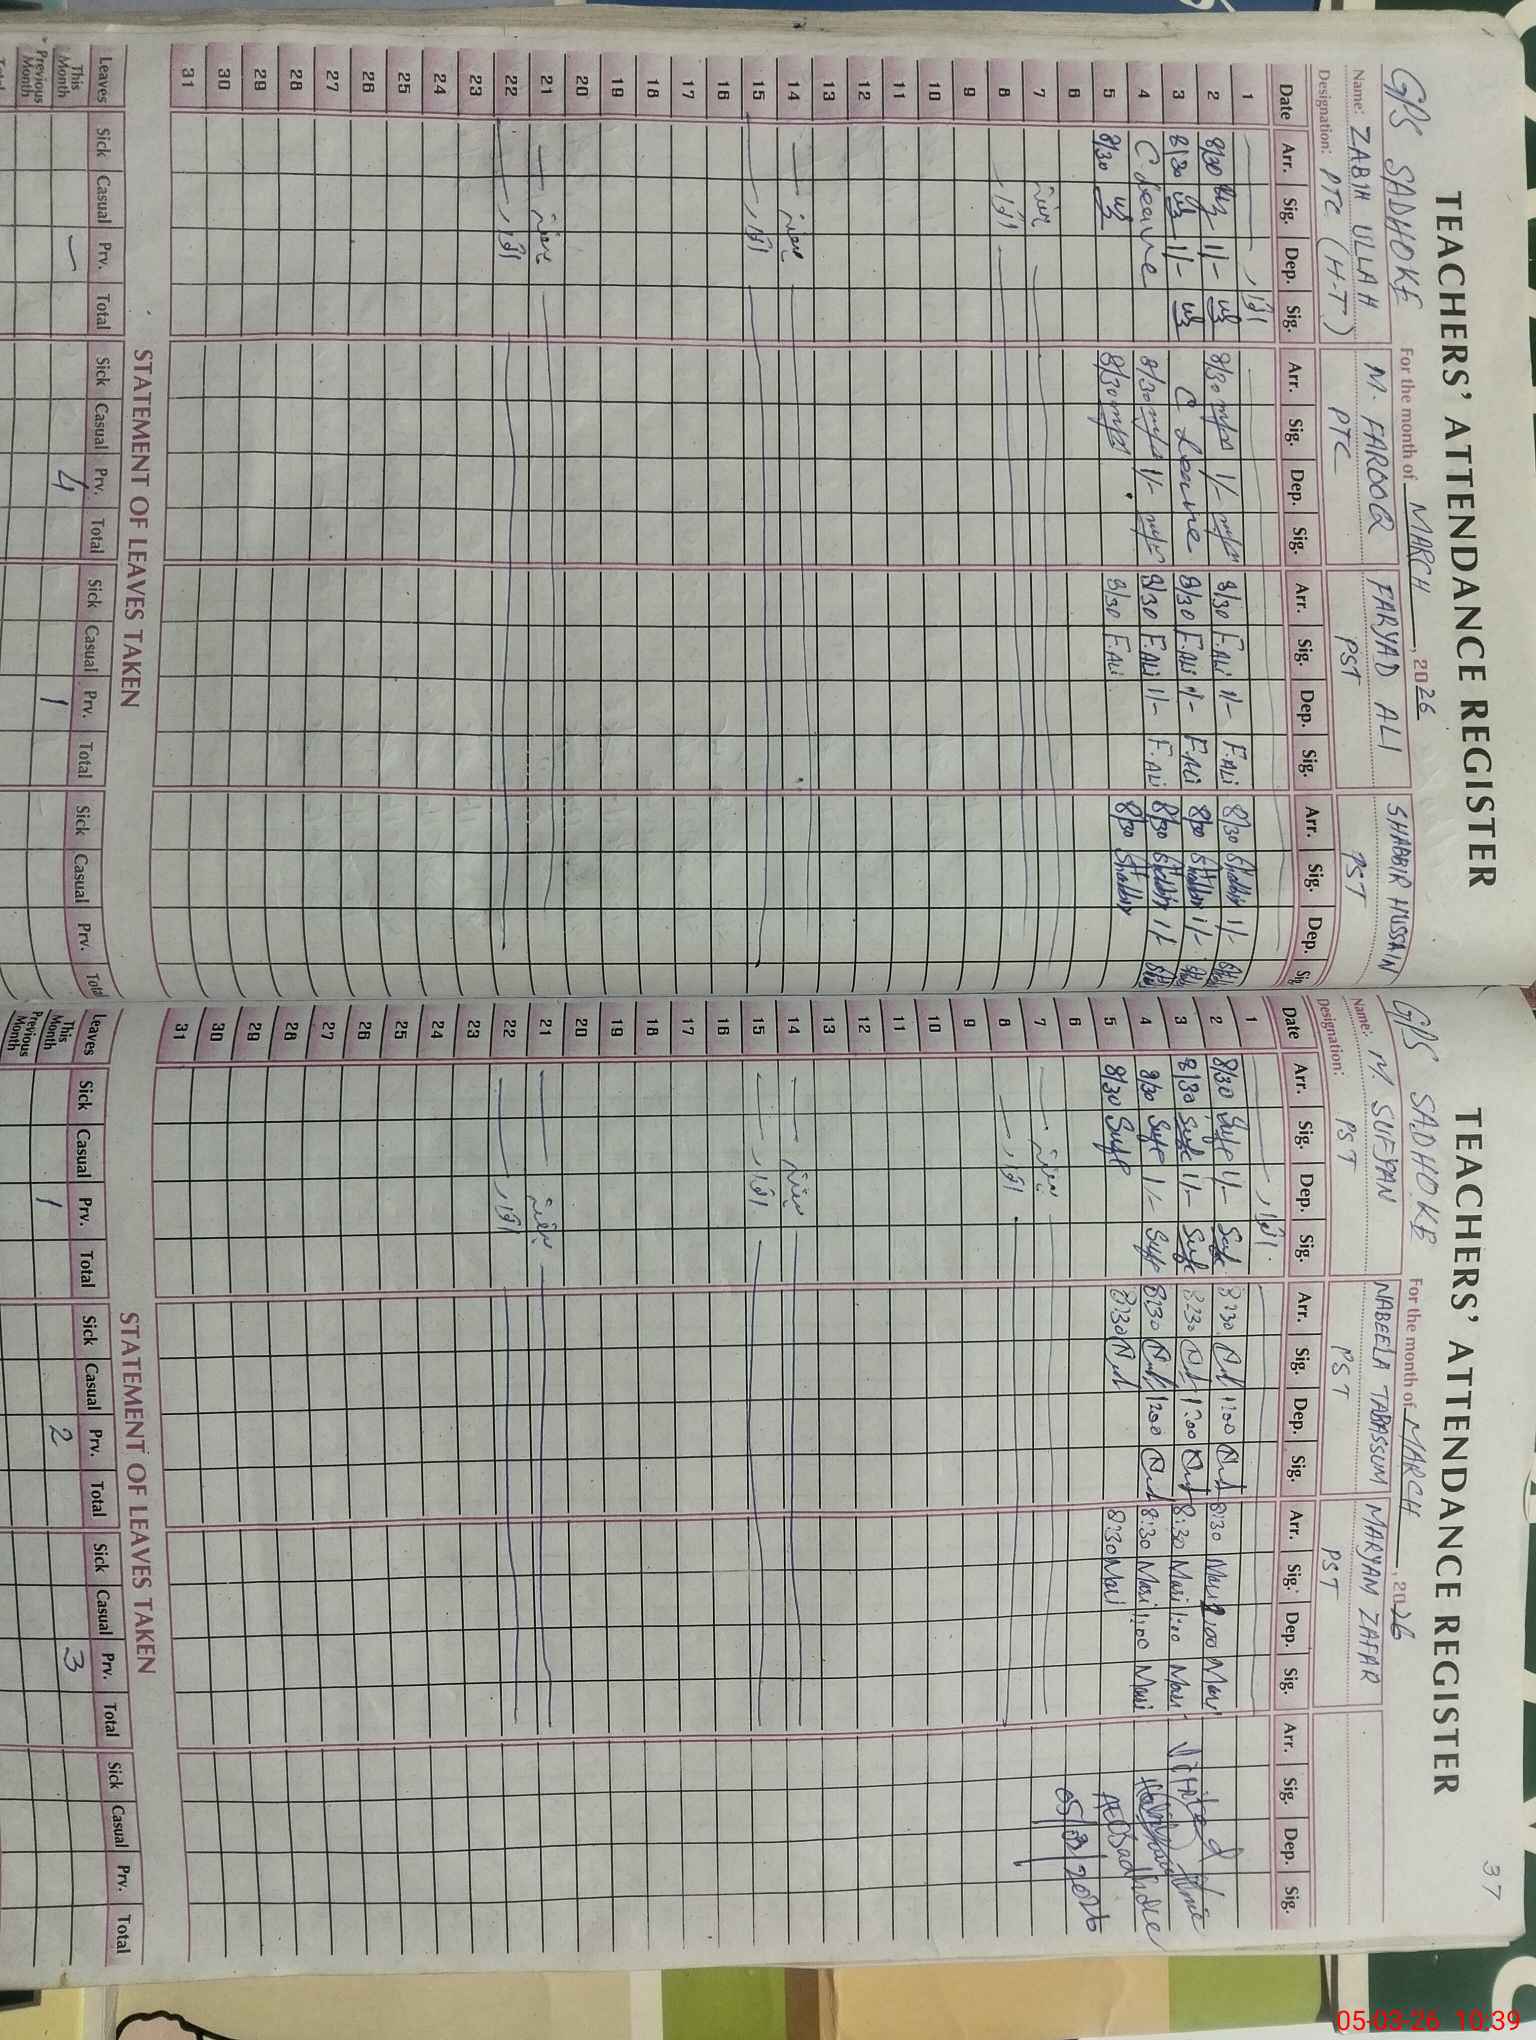 TEACHERS' ATTENDANCE REGISTER
GPS SADHOKE For the month of MARCH, 2026
Name: ZABIH ULLAH M. FAROOQ FARYAD ALI SHABBIR HUSSAIN
Designation: PTC (H-T) PTC PST PST
Date Arr. Sig. Dep. Sig. Arr. Sig. Dep. Sig. Arr. Sig. Dep. Sig. Arr. Sig. Dep. Sig.
1 اتوار
2 8/30 1/- 8/30 1/- 8/30 F.ALI 1/- F.ALI 8/30 Shabbir 1/-
3 8/30 1/- C Leave 8/30 F.ALI 1/- F.ALI 8/30 Shabbir 1/-
4 C Leave 8/30 1/- 8/30 F.ALI 1/- F.ALI 8/30 Shabbir 1/-
5 8/30 8/30 8/30 F.ALI 8/30 Shabbir
6
7 ہفتہ
8 اتوار
9
10
11
12
13
14 ہفتہ
15 اتوار
16
17
18
19
20
21 ہفتہ
22 اتوار
23
24
25
26
27
28
29
30
31
STATEMENT OF LEAVES TAKEN
Leaves Sick Casual Prv. Total Sick Casual Prv. Total Sick Casual Prv. Total Sick Casual Prv. Total
This Month 4 1
Previous Month
37
TEACHERS' ATTENDANCE REGISTER
GPS SADHOKE For the month of MARCH, 2026
Name: M. SUFYAN NABEELA TABASSUM MARYAM ZAFAR
Designation: PST PST PST
Date Arr. Sig. Dep. Sig. Arr. Sig. Dep. Sig. Arr. Sig. Dep. Sig. Arr. Sig. Dep. Sig.
1 اتوار
2 8/30 1/- 8:30 1:00 8:30 1:00
3 8/30 1/- 8:30 1:00 8:30 1:00 Visited
4 8/30 1/- 8:30 1:00 8:30 1:00
5 8/30 8:30 8:30 AEO Sadhoke
6 05/03/2026
7 ہفتہ
8 اتوار
9
10
11
12
13
14 ہفتہ
15 اتوار
16
17
18
19
20
21 ہفتہ
22 اتوار
23
24
25
26
27
28
29
30
31
STATEMENT OF LEAVES TAKEN
Leaves Sick Casual Prv. Total Sick Casual Prv. Total Sick Casual Prv. Total Sick Casual Prv. Total
This Month 1 2 3
Previous Month
05-03-26 10:39